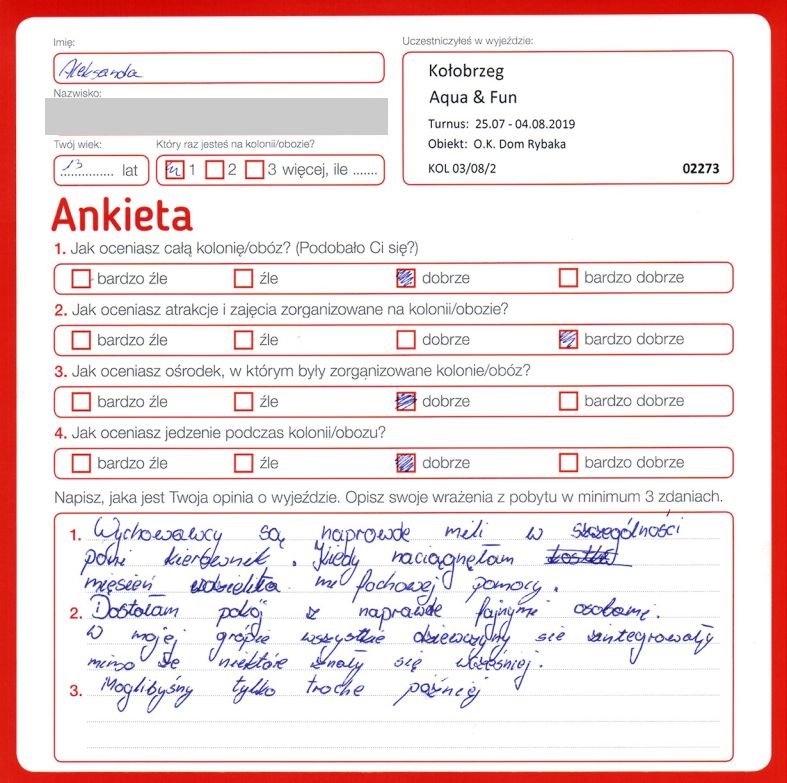 Imię:
Aleksanda
Nazwisko:
Twój wiek:
13 lat
Który raz jesteś na kolonii/obozie?
1 2 3 więcej, ile .......
Uczestniczyłeś w wyjeździe:
Kołobrzeg
Aqua & Fun
Turnus: 25.07 - 04.08.2019
Obiekt: O.K. Dom Rybaka
KOL 03/08/2 02273
Ankieta
1. Jak oceniasz całą kolonię/obóz? (Podobało Ci się?)
bardzo źle źle dobrze bardzo dobrze
2. Jak oceniasz atrakcje i zajęcia zorganizowane na kolonii/obozie?
bardzo źle źle dobrze bardzo dobrze
3. Jak oceniasz ośrodek, w którym były zorganizowane kolonie/obóz?
bardzo źle źle dobrze bardzo dobrze
4. Jak oceniasz jedzenie podczas kolonii/obozu?
bardzo źle źle dobrze bardzo dobrze
Napisz, jaka jest Twoja opinia o wyjeździe. Opisz swoje wrażenia z pobytu w minimum 3 zdaniach.
1. Wychowawcy są naprawde mili w szczególności
pani kierownik. Kiedy naciągnęłam
mięsień udzieliła mi fachowej pomocy.
2. Dostałam pokój z naprawde fajnymi osobami.
W mojej grópie wszystkie dziewczyny sie zintegrowały
mimo że niektóre znały się wcześniej.
3. Moglibyśmy tylko troche później